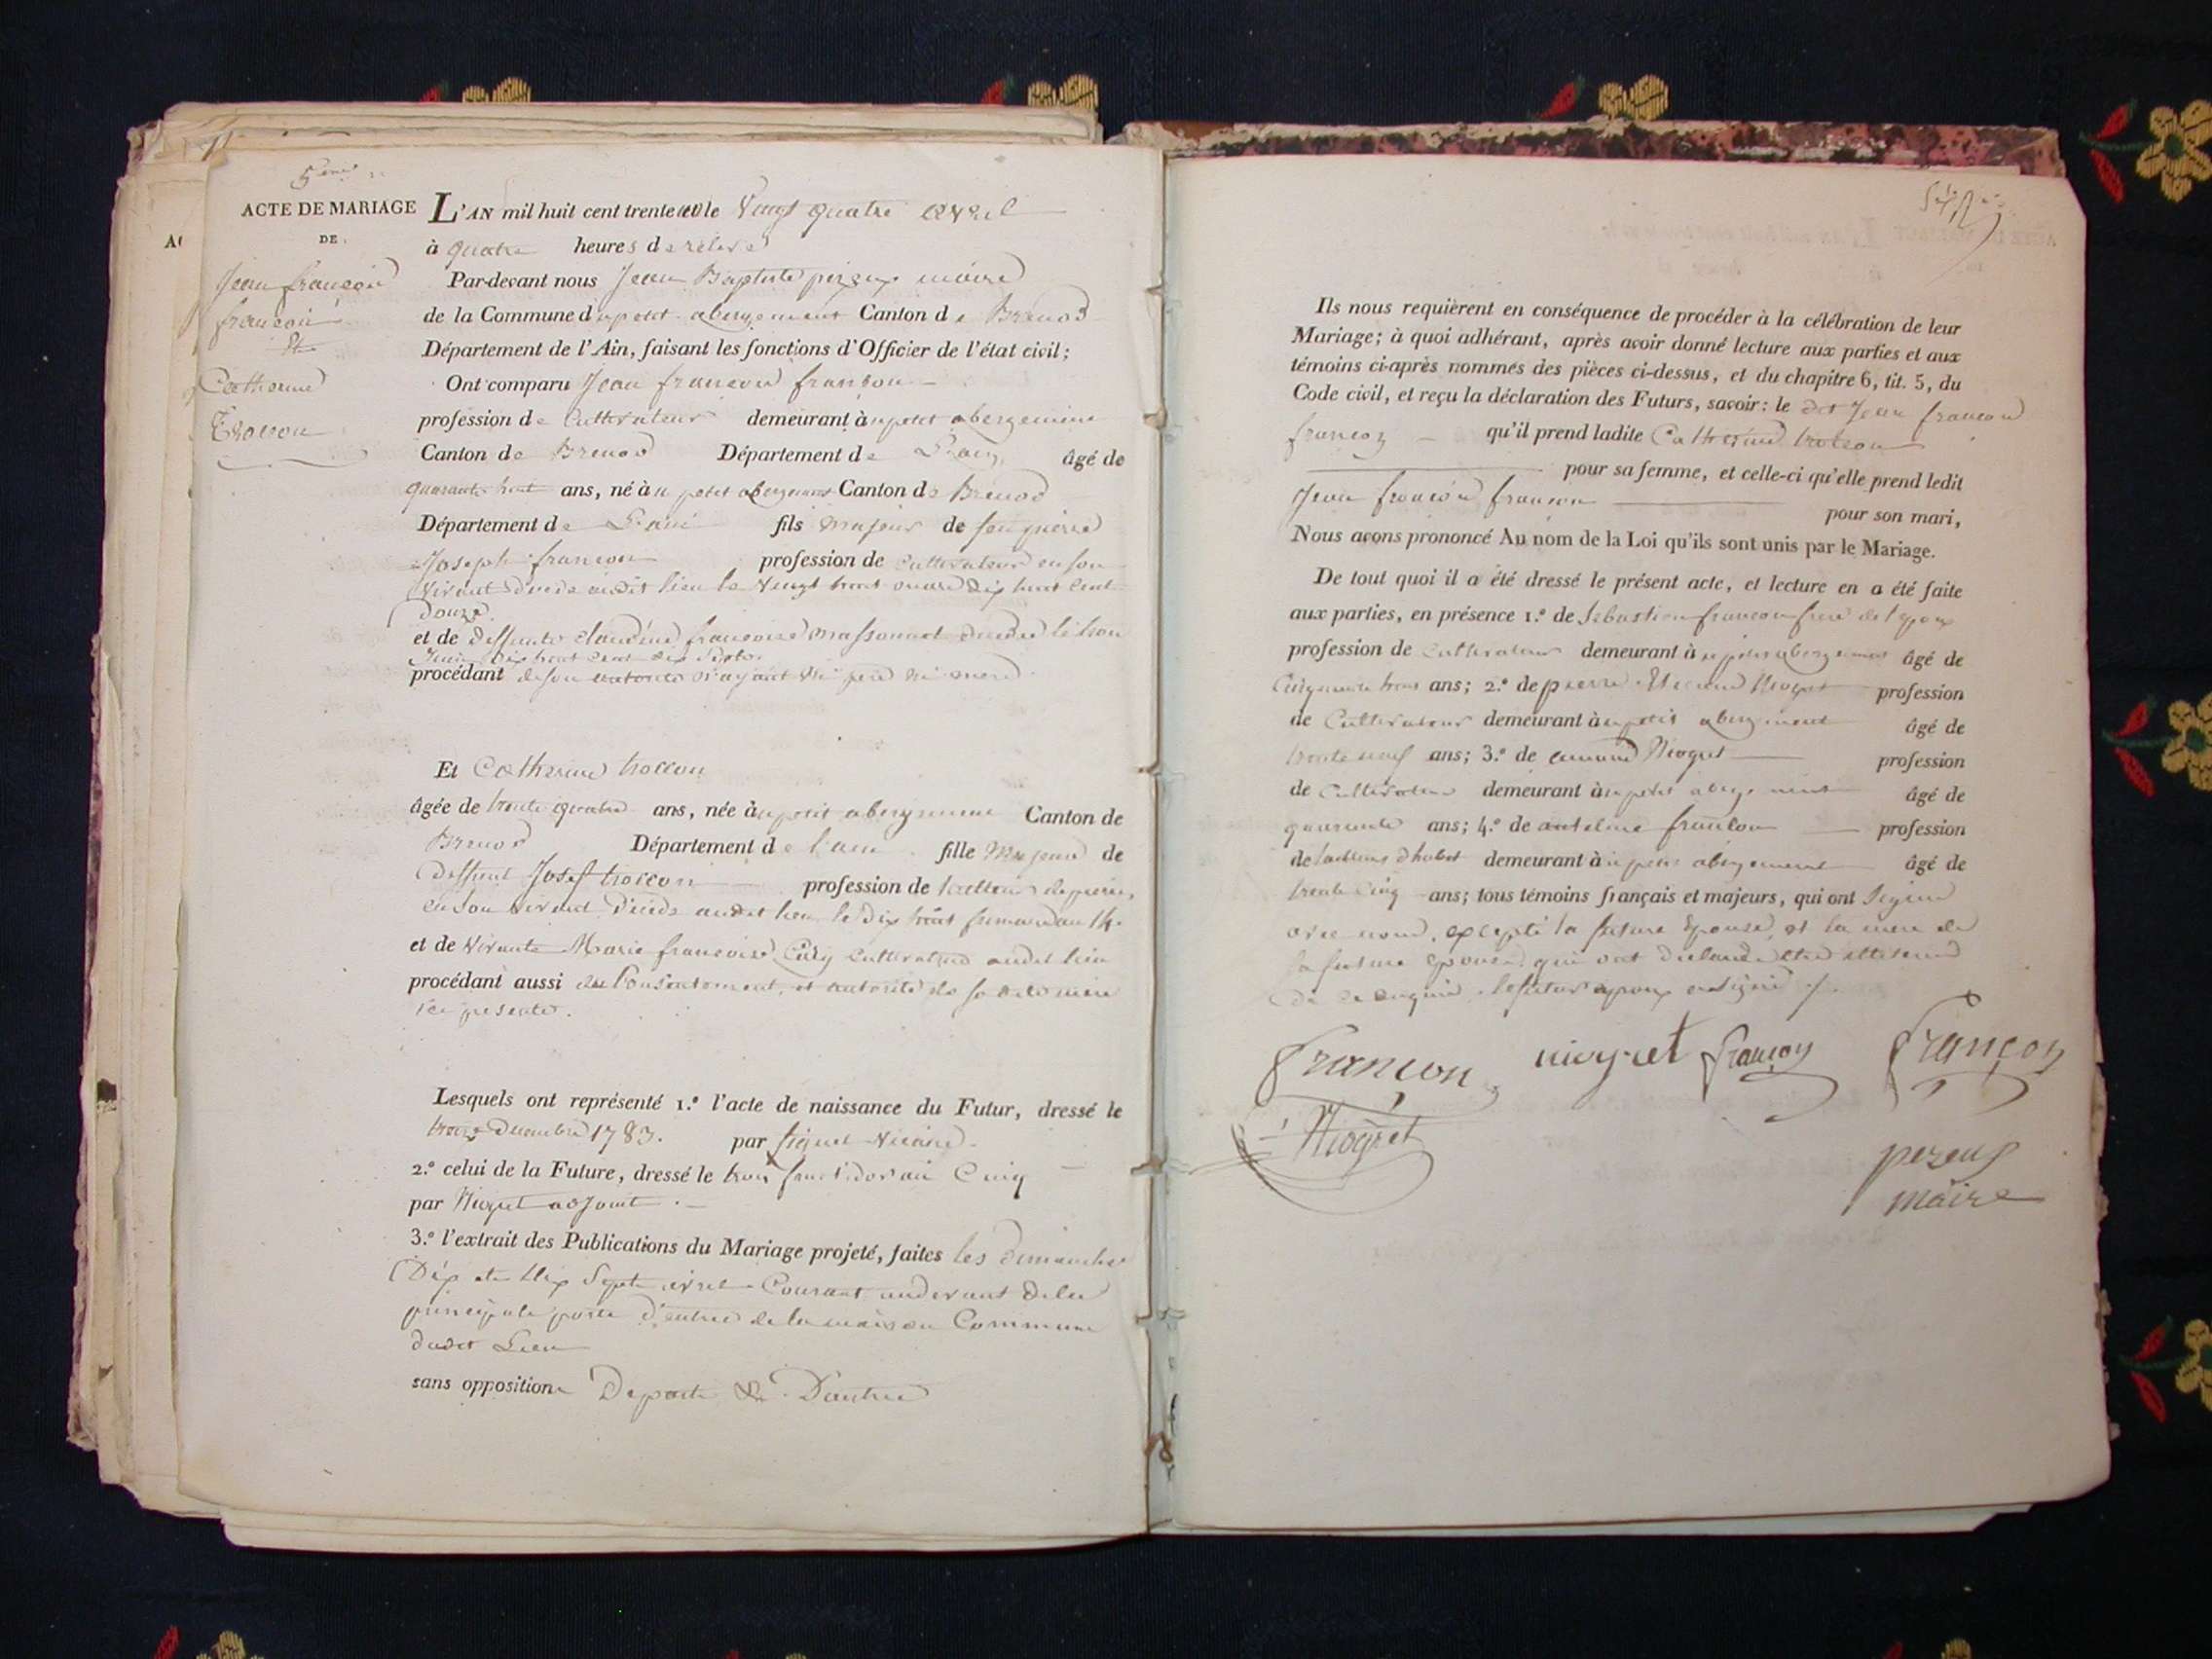 5ème
ACTE DE MARIAGE
DE
Jean françois
françon
Et
Catherine
Trocon
L'AN mil huit cent trente un le Vingt quatre avril
à quatre heures de relevé
Par-devant nous Jean Baptiste pezeux maire
de la Commune du petit abergement Canton de Brenod
Département de l'Ain, faisant les fonctions d'Officier de l'état civil;
Ont comparu Jean francois françon
profession de Cultivateur demeurant au petit abergement
Canton de Brenod Département de L'ain âgé de
quarante huit ans, né au petit abergement Canton de Brenod
Département de L'ain fils majeur de feu pierre
Joseph françon profession de Cultivateur en son
vivant décédé audit lieu le Vingt huit dix huit cent
douze.
et de deffunte claudine françoise massonnet décédée le trois
Juin dix huit cent dix sept
procédant de son autorité n'ayant ni père ni mère
Et Catherine trocon
âgée de trente quatre ans, née au petit abergement Canton de
Brenod Département de l'ain fille Majeure de
deffunt Josef trocon profession de tailleur de pierre,
en son vivant décédé audit lieu le dix huit frimaire an 14.
et de vivante Marie françoise Cultivatrice audit lieu
procédant aussi du Consentement et autorité de sa dite mère
ici présente.
Lesquels ont représenté 1.º l'acte de naissance du Futur, dressé le
treize decembre 1783. par Vicaire
2.º celui de la Future, dressé le trois fructidor an Cinq
par Niogret adjoint
3.º l'extrait des Publications du Mariage projeté, faites les dimanches
Dix et Dix Sept avril Courant au devant de la
principale porte d'entrée de la maison Commune
dudit Lieu
sans opposition De part et D'autre
Ils nous requièrent en conséquence de procéder à la célébration de leur
Mariage; à quoi adhérant, après avoir donné lecture aux parties et aux
témoins ci-après nommés des pièces ci-dessus, et du chapitre 6, tit. 5, du
Code civil, et reçu la déclaration des Futurs, savoir: le dit Jean francois
françon qu'il prend ladite Catherine trocon
pour sa femme, et celle-ci qu'elle prend ledit
Jean francois françon
pour son mari,
Nous avons prononcé Au nom de la Loi qu'ils sont unis par le Mariage.
De tout quoi il a été dressé le présent acte, et lecture en a été faite
aux parties, en présence 1.º de Sebastien françon frere de l'epoux
profession de Cultivateur demeurant au petit abergement âgé de
Cinquante trois ans; 2.º de pierre Niogret profession
de Cultivateur demeurant au petit abergement âgé de
trente neuf ans; 3.º de Niogret profession
de Cultivateur demeurant au petit abergement âgé de
quarante ans; 4.º de antelme françon profession
de tailleur d'habit demeurant au petit abergement âgé de
trente Cinq ans; tous témoins français et majeurs, qui ont Signé
avec nous, excepté la future Epouse et la mere de
la future Epouse qui ont déclaré être illitérées
de ce enquis. le futur epoux a signé
françon niogret françon françon
Niogret
pezeux
maire